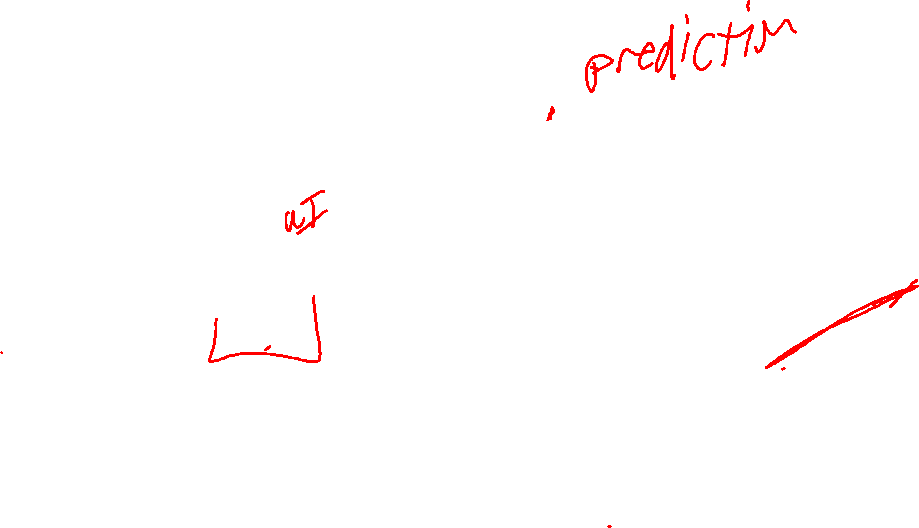 prediction
aI